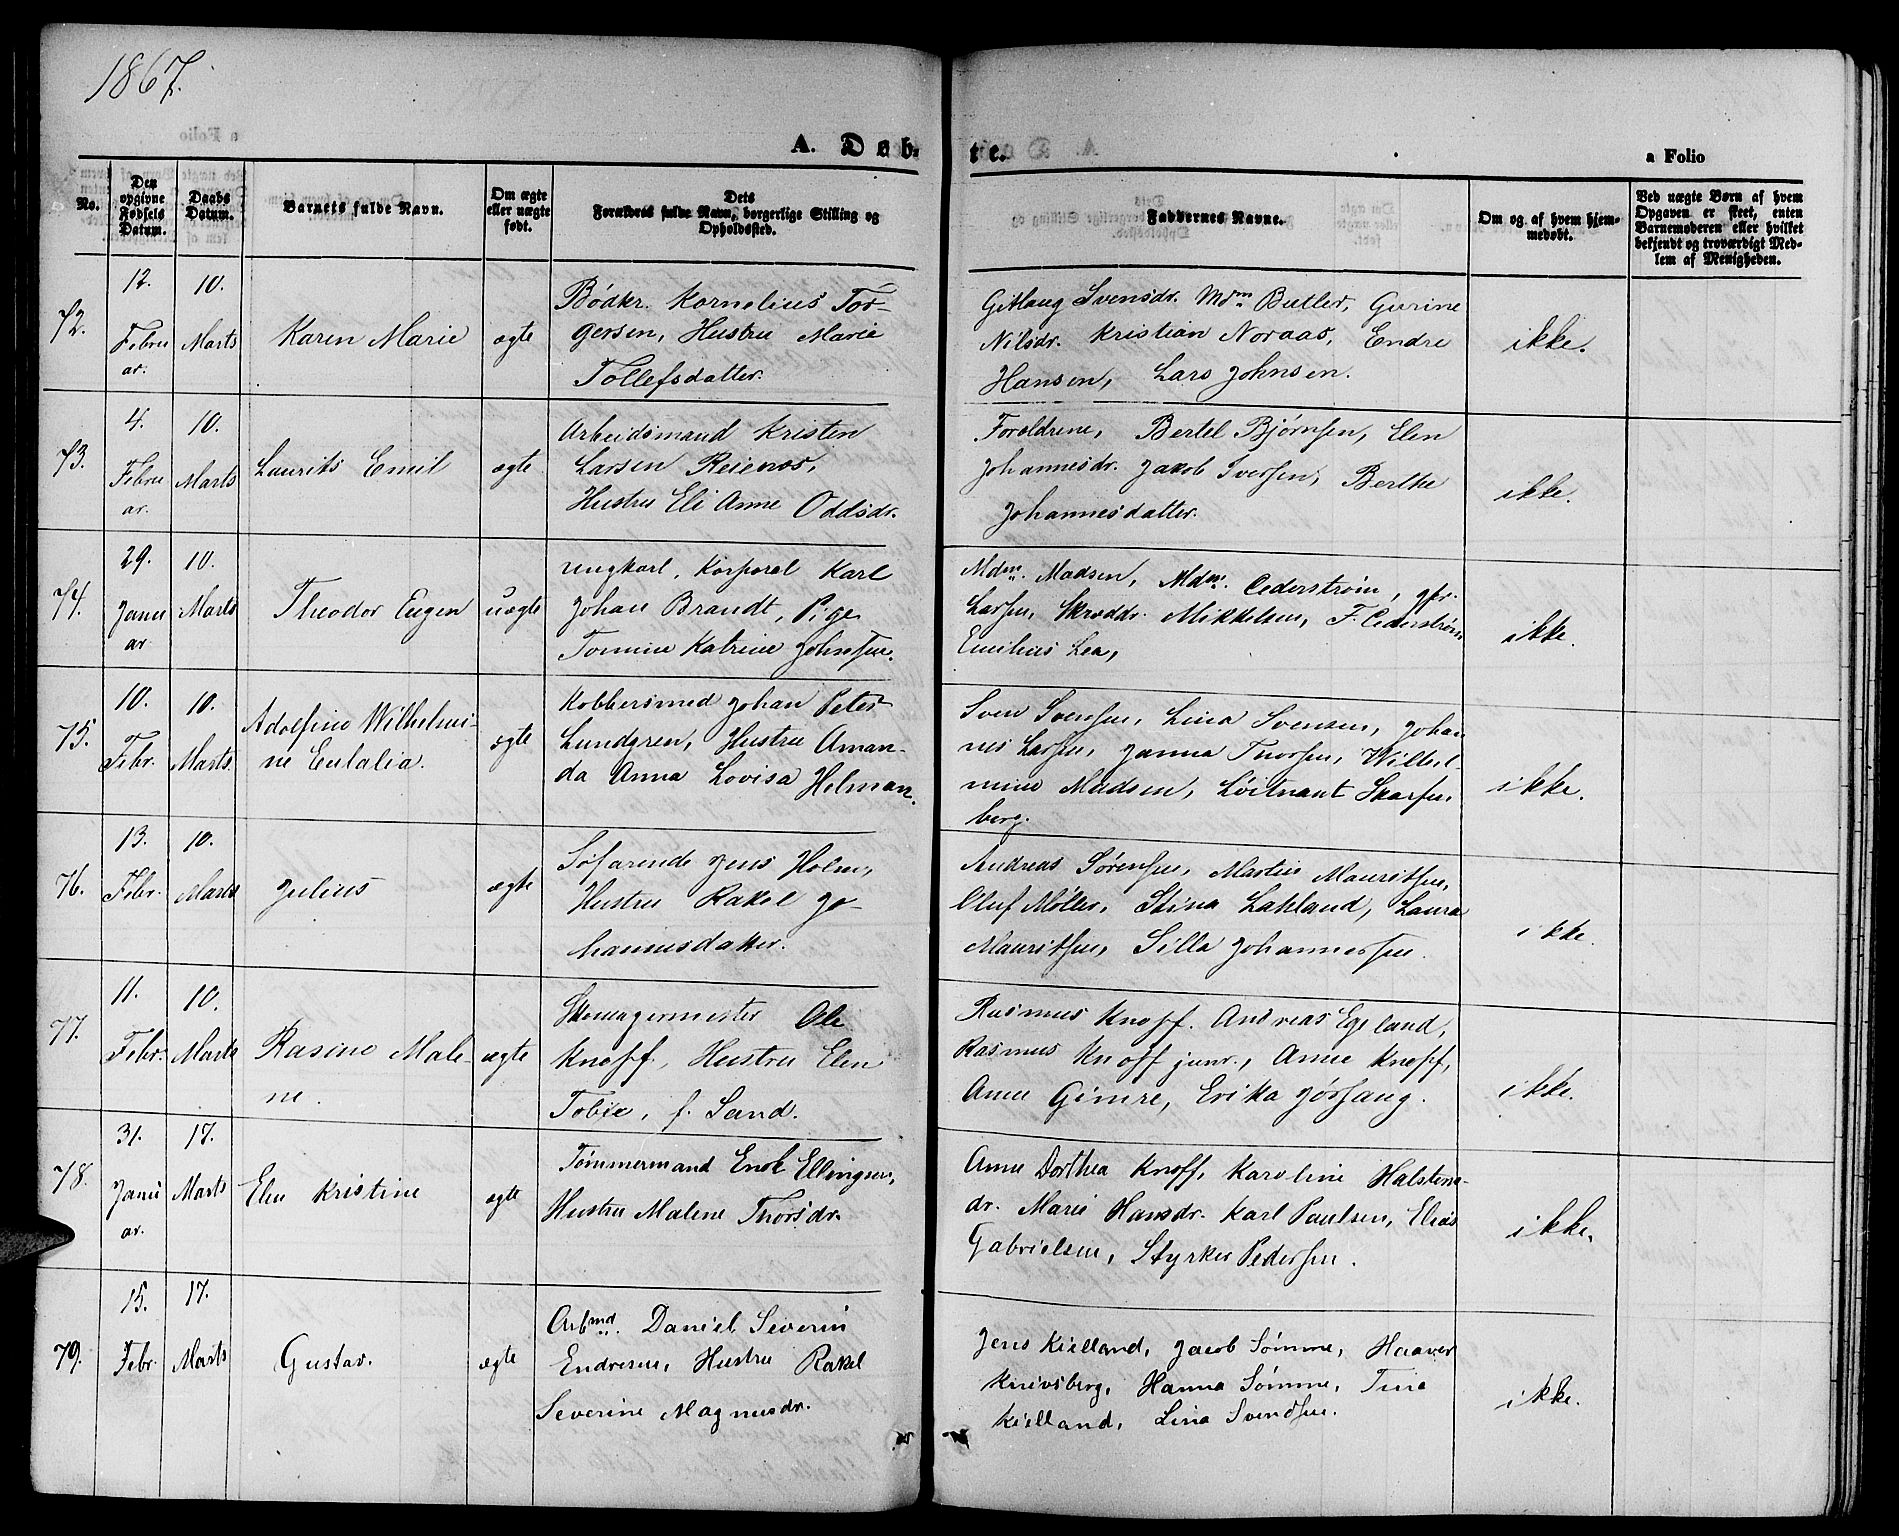 1867.
A. Døb-
te.
a Folio
No.
Den
opgivne
Fødsels
Datum.
Daabs
Datum.
Barnets fulde Navn.
Om ægte
eller uægte
født.
Dets
Forældres fulde Navn, borgerlige Stilling og
Opholdssted.
Faddernes Navne.
Om og af hvem hjem-
medøbt.
Ved uægte Børn af hvem
Opgaven er skeet, enten
Barnemoderen eller hvilket
bekjendt og troværdigt Med-
lem af Menigheden.
72.
12.
Febru
ar.
10.
Marts
Karen Marie
ægte
Bødkr. Kornelius Tor-
gersen, Hustru Marie
Tollefsdatter.
Gitlaug Svensdr. Mdm Butler, Gurine
Nilsdr. Kristian Noraas, Endre
Hansen, Lars Johnsen.
ikke.
73.
4.
Febru
ar.
10.
Marts
Laurits Emil
ægte.
Arbeidsmand Kristen
Larsen Reienes,
Hustru Eli Anne Oddsdr.
Foreldrene, Bertel Bjørnsen, Elen
Johannesdr. Jakob Iversen, Berthe
Johannesdatter.
ikke.
74.
29.
Janu
ar
10.
Marts
Theodor Eugen
uægte
ungkarl, Korporal Karl
Johan Brandt, Pige
Tomine Katrine Johnsen.
Mdm. Madsen, Mdm. Cederstrøm, gfr.
Larsen, Skreddr. Mikkelsen, F. Cederstrøm
Emilius Lea,
ikke.
75.
10.
Febr.
10.
Marts.
Adolfine Wilhelmi-
ne Eulalia.
ægte
Kobbersmed Johan Peter
Lundgren, Hustru Aman-
da Anna Lovisa Helman.
Sven Svensen, Lina Svensen, Johan
nes Larsen, Janna Thorsen, Wilhel-
mine Madsen, Løitnant Skarfen
berg.
ikke.
76.
13.
Febr.
10.
Marts
Julius
ægte
Søfarende Jens Holm,
Hustru Rakel Jo-
hannesdatter.
Andreas Sørensen, Martin Mauritsen,
Oluf Møller, Stina Lakland, Laura
Mauritsen, Silla Johannessen.
ikke.
77.
11.
Febr.
10.
Marts
Rasine Male-
ne.
ægte
Skomagermester Ole
Knoff, Hustru Elen
Tobie, f. Sand.
Rasmus Knoff. Andreas Egeland,
Rasmus Knoff junr., Anne Knoff,
Anne Gimre, Erika Jørsang.
ikke.
78.
31.
Janu
ar.
17.
Marts
Elen Kristine
ægte
Tømmermand Enok Ellingsen,
Hustru Malene Thorsdr.
Anne Dorthea Knoff, Karoline Halstens-
dr. Marie Hansdr. Karl Paulsen, Elias
Gabrielsen, Styrker Pedersen.
ikke.
79.
15.
Febr.
17.
Marts
Gustav.
ægte
Arbmd. Daniel Severin
Endresen, Hustru Rakel
Severine Magnusdr.
Jens Kielland, Jacob Sømme, Haaver
Knivsberg, Hanna Sømme, Tine
Kielland, Lina Svendsen.
ikke.